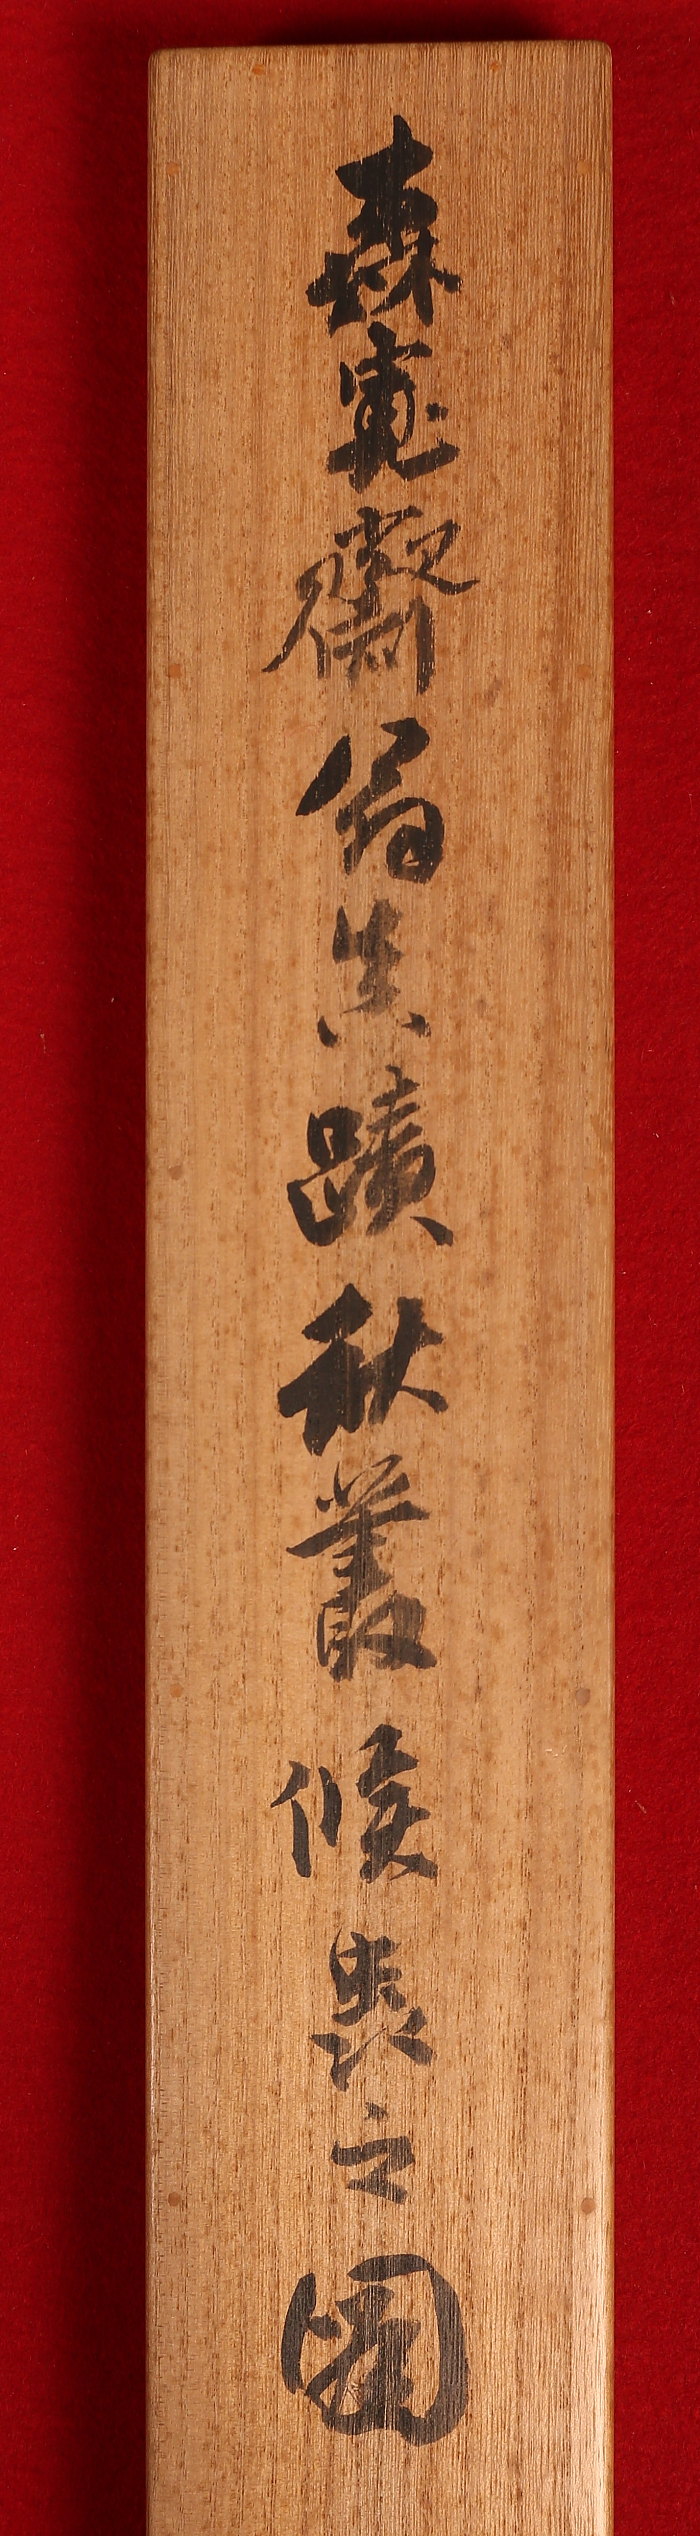 森寛齋翁真蹟秋叢候蟲之圖